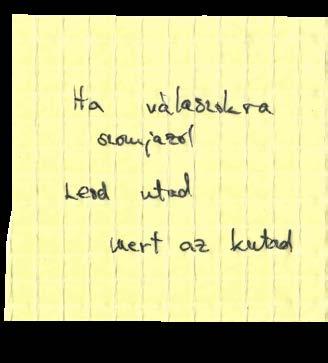 Ha válaszokra
szomjazol
Lesd utad
mert az kutad